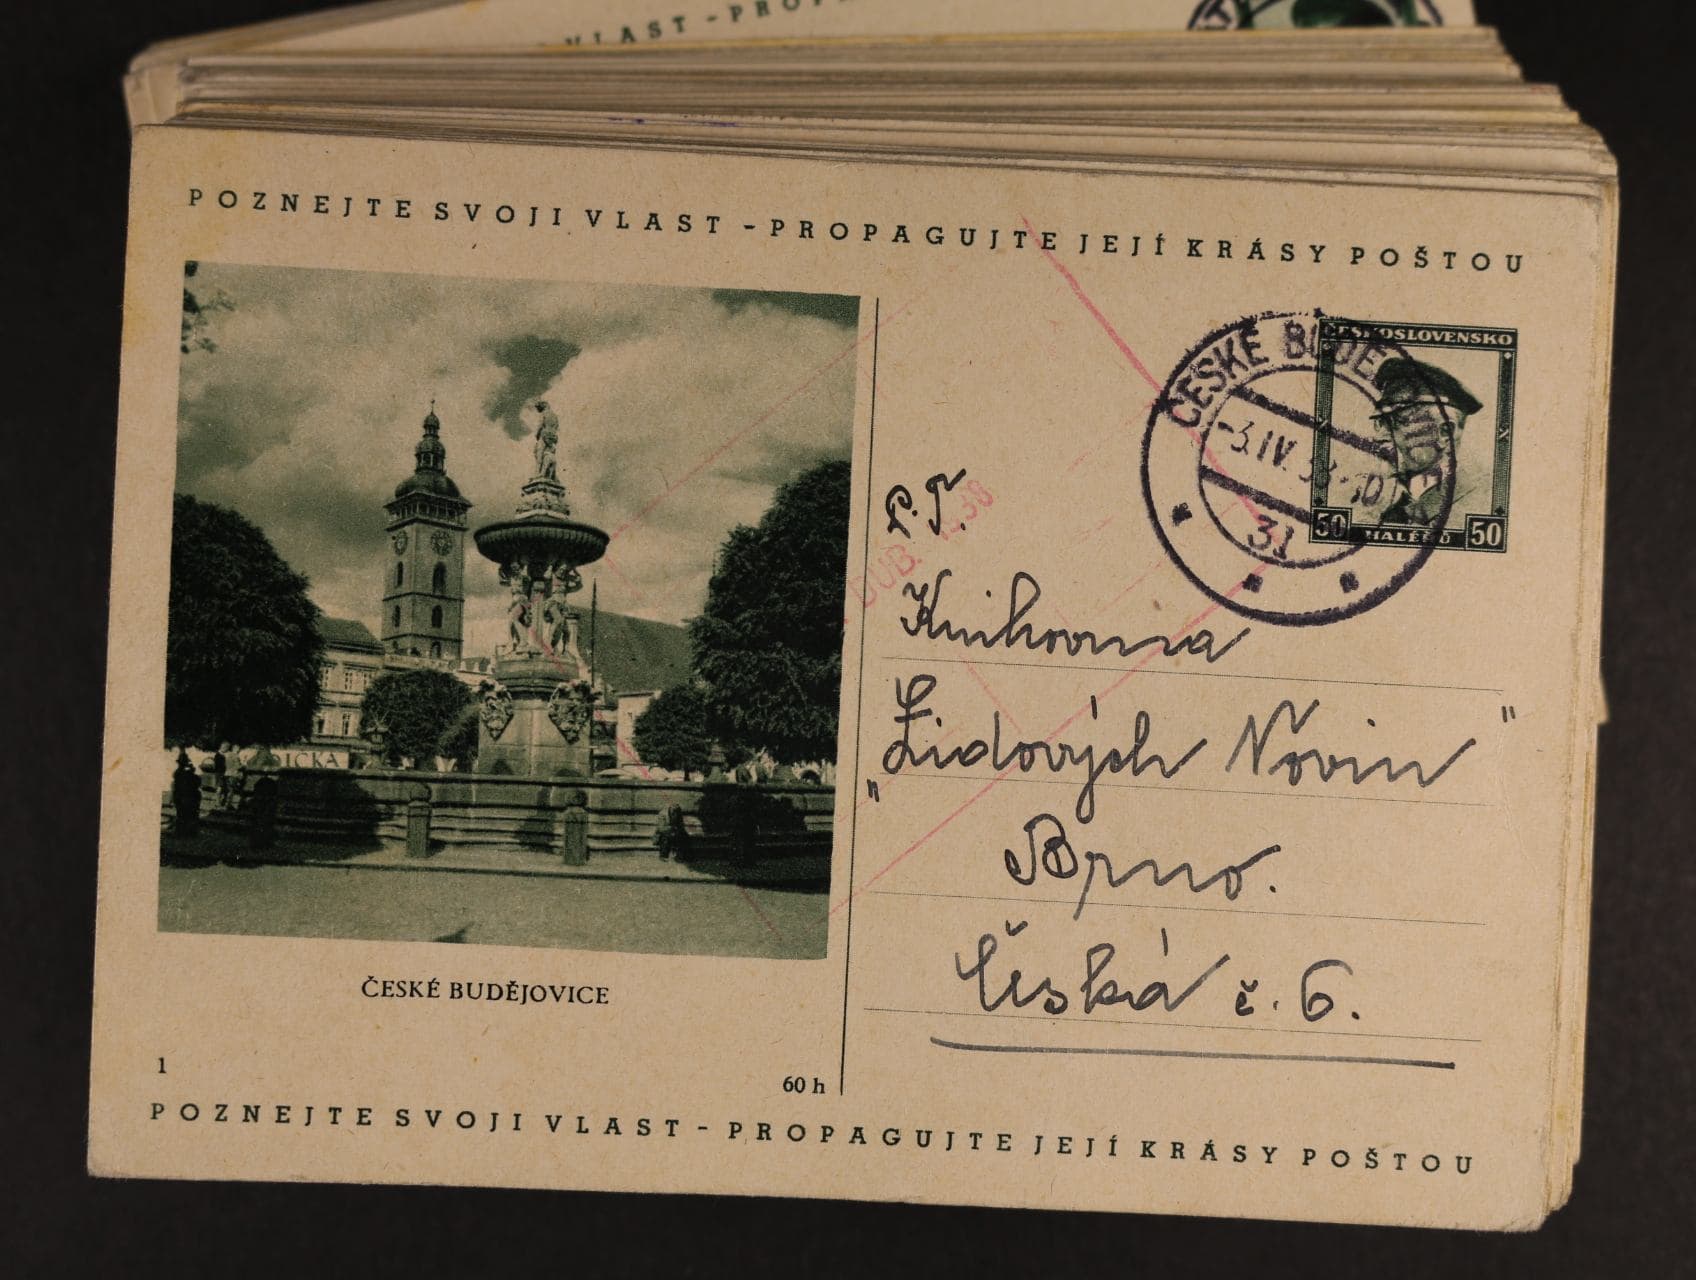 VLAST - PROP
POZNEJTE SVOJI VLAST - PROPAGUJTE JEJÍ KRÁSY POŠTOU
ČESKOSLOVENSKO
ČESKÉ BUDĚJOVICE
-3.IV.38-10
31
50 HALÉŘŮ 50
P. T.
DUB. 1938
Knihovna
„Lidových Novin"
Brno.
Česká č. 6.
ČESKÉ BUDĚJOVICE
1
60 h
POZNEJTE SVOJI VLAST - PROPAGUJTE JEJÍ KRÁSY POŠTOU